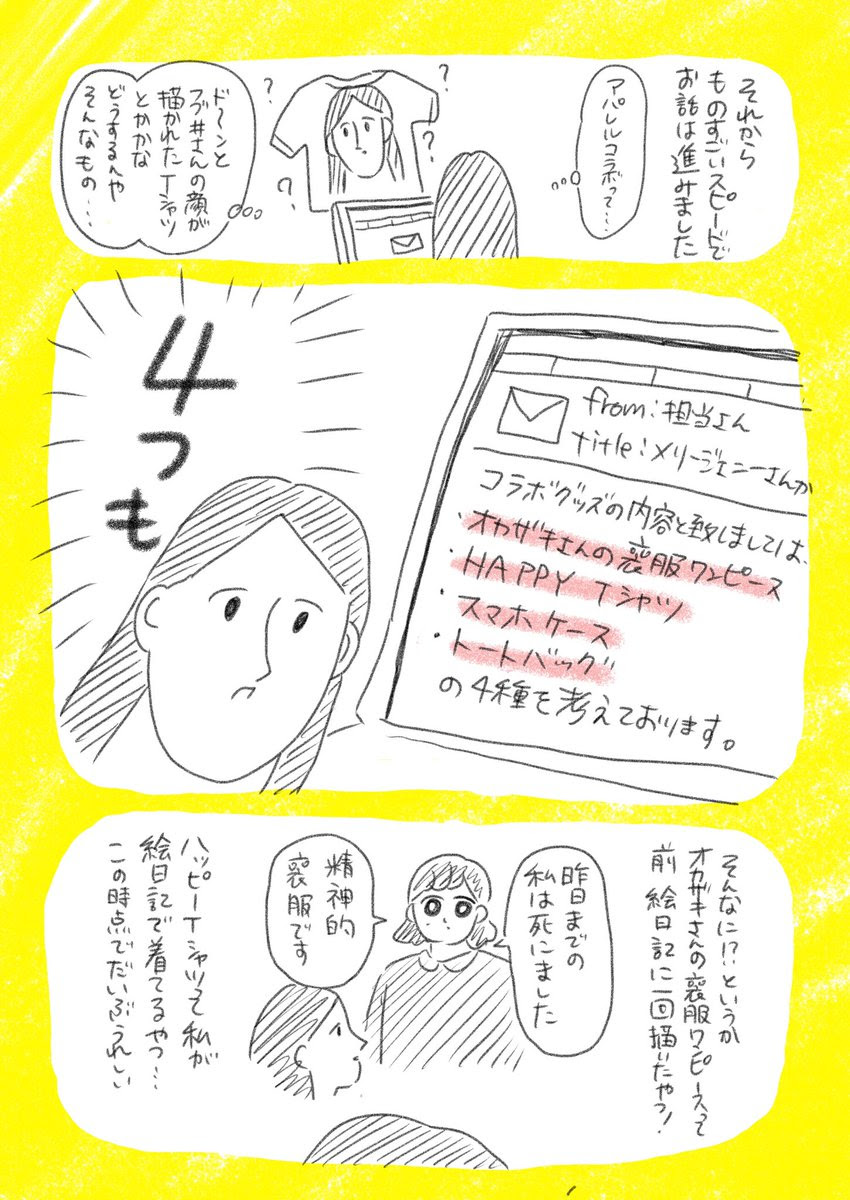 それから
ものすごいスピードで
お話は進みました
アパレルコラボって…
?
?
?
?
?
ド〜ンと
フジ井さんの顔が
描かれたTシャツ
とかかな
どうするんや
そんなもの…
4つも
from:担当さん
title:メリージェニーさんか
コラボグッズの内容と致しましては、
・オカザキさんの喪服ワンピース
・HAPPY Tシャツ
・スマホケース
・トートバッグ
の4種を考えております。
そんなに!?というか
オカザキさんの喪服ワンピースって
前絵日記に一回描いたやつ!
昨日までの
私は死にました
精神的
喪服です
ハッピーTシャツって私が
絵日記で着てるやつ…
この時点でだいぶうれしい